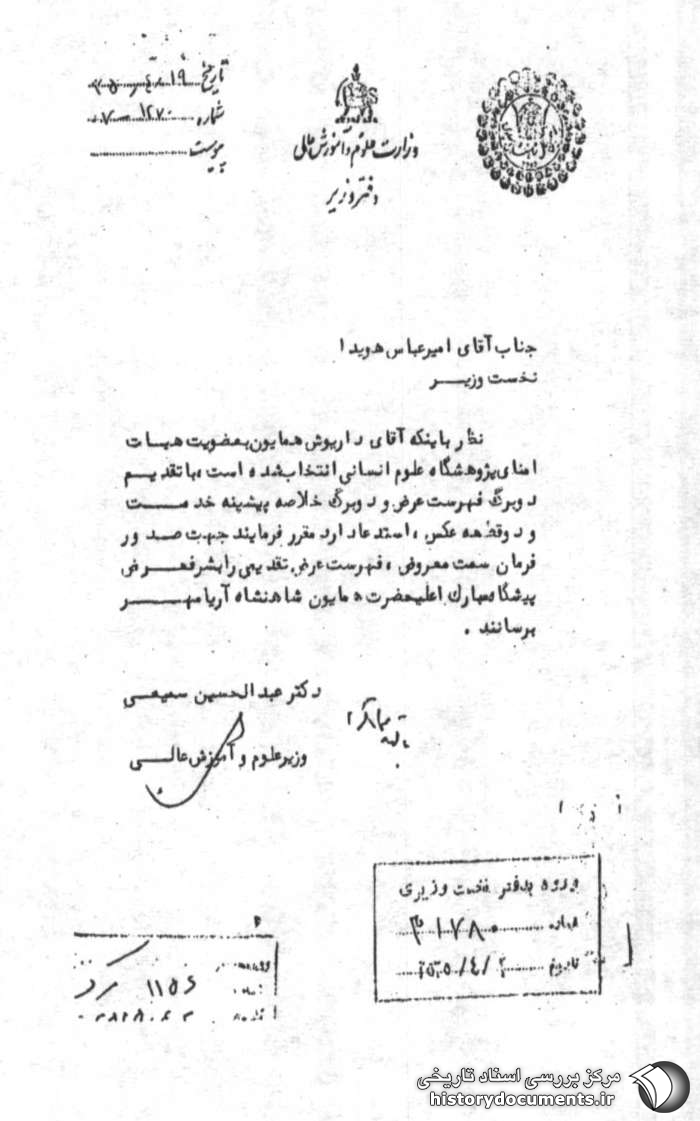 تاریخ
شماره
پیوست
وزارت علوم و آموزش عالی
دفتر وزیر
جناب آقای امیرعباس هویدا
نخست وزیر
نظر باینکه آقای داریوش همایون بعضویت هیات
امنای پژوهشگاه علوم انسانی انتخاب شده است ، با تقدیم
دوبرگ فهرست عرض و دوبرگ خلاصه پیشینه خدمت
و دوقطعه عکس ، استدعا دارد مقرر فرمایند جهت صدور
فرمان سمت معروض ، فهرست عرض تقدیمی را بشرفعرض
پیشگاه مبارک اعلیحضرت همایون شاهنشاه آریامهر
برسانند .
دکتر عبدالحسین سمیعی
وزیر علوم و آموزش عالی
ورود بدفتر نخست وزیری
شماره ۳۱۷۸۰
تاریخ
مرکز بررسی اسناد تاریخی
historydocuments.ir